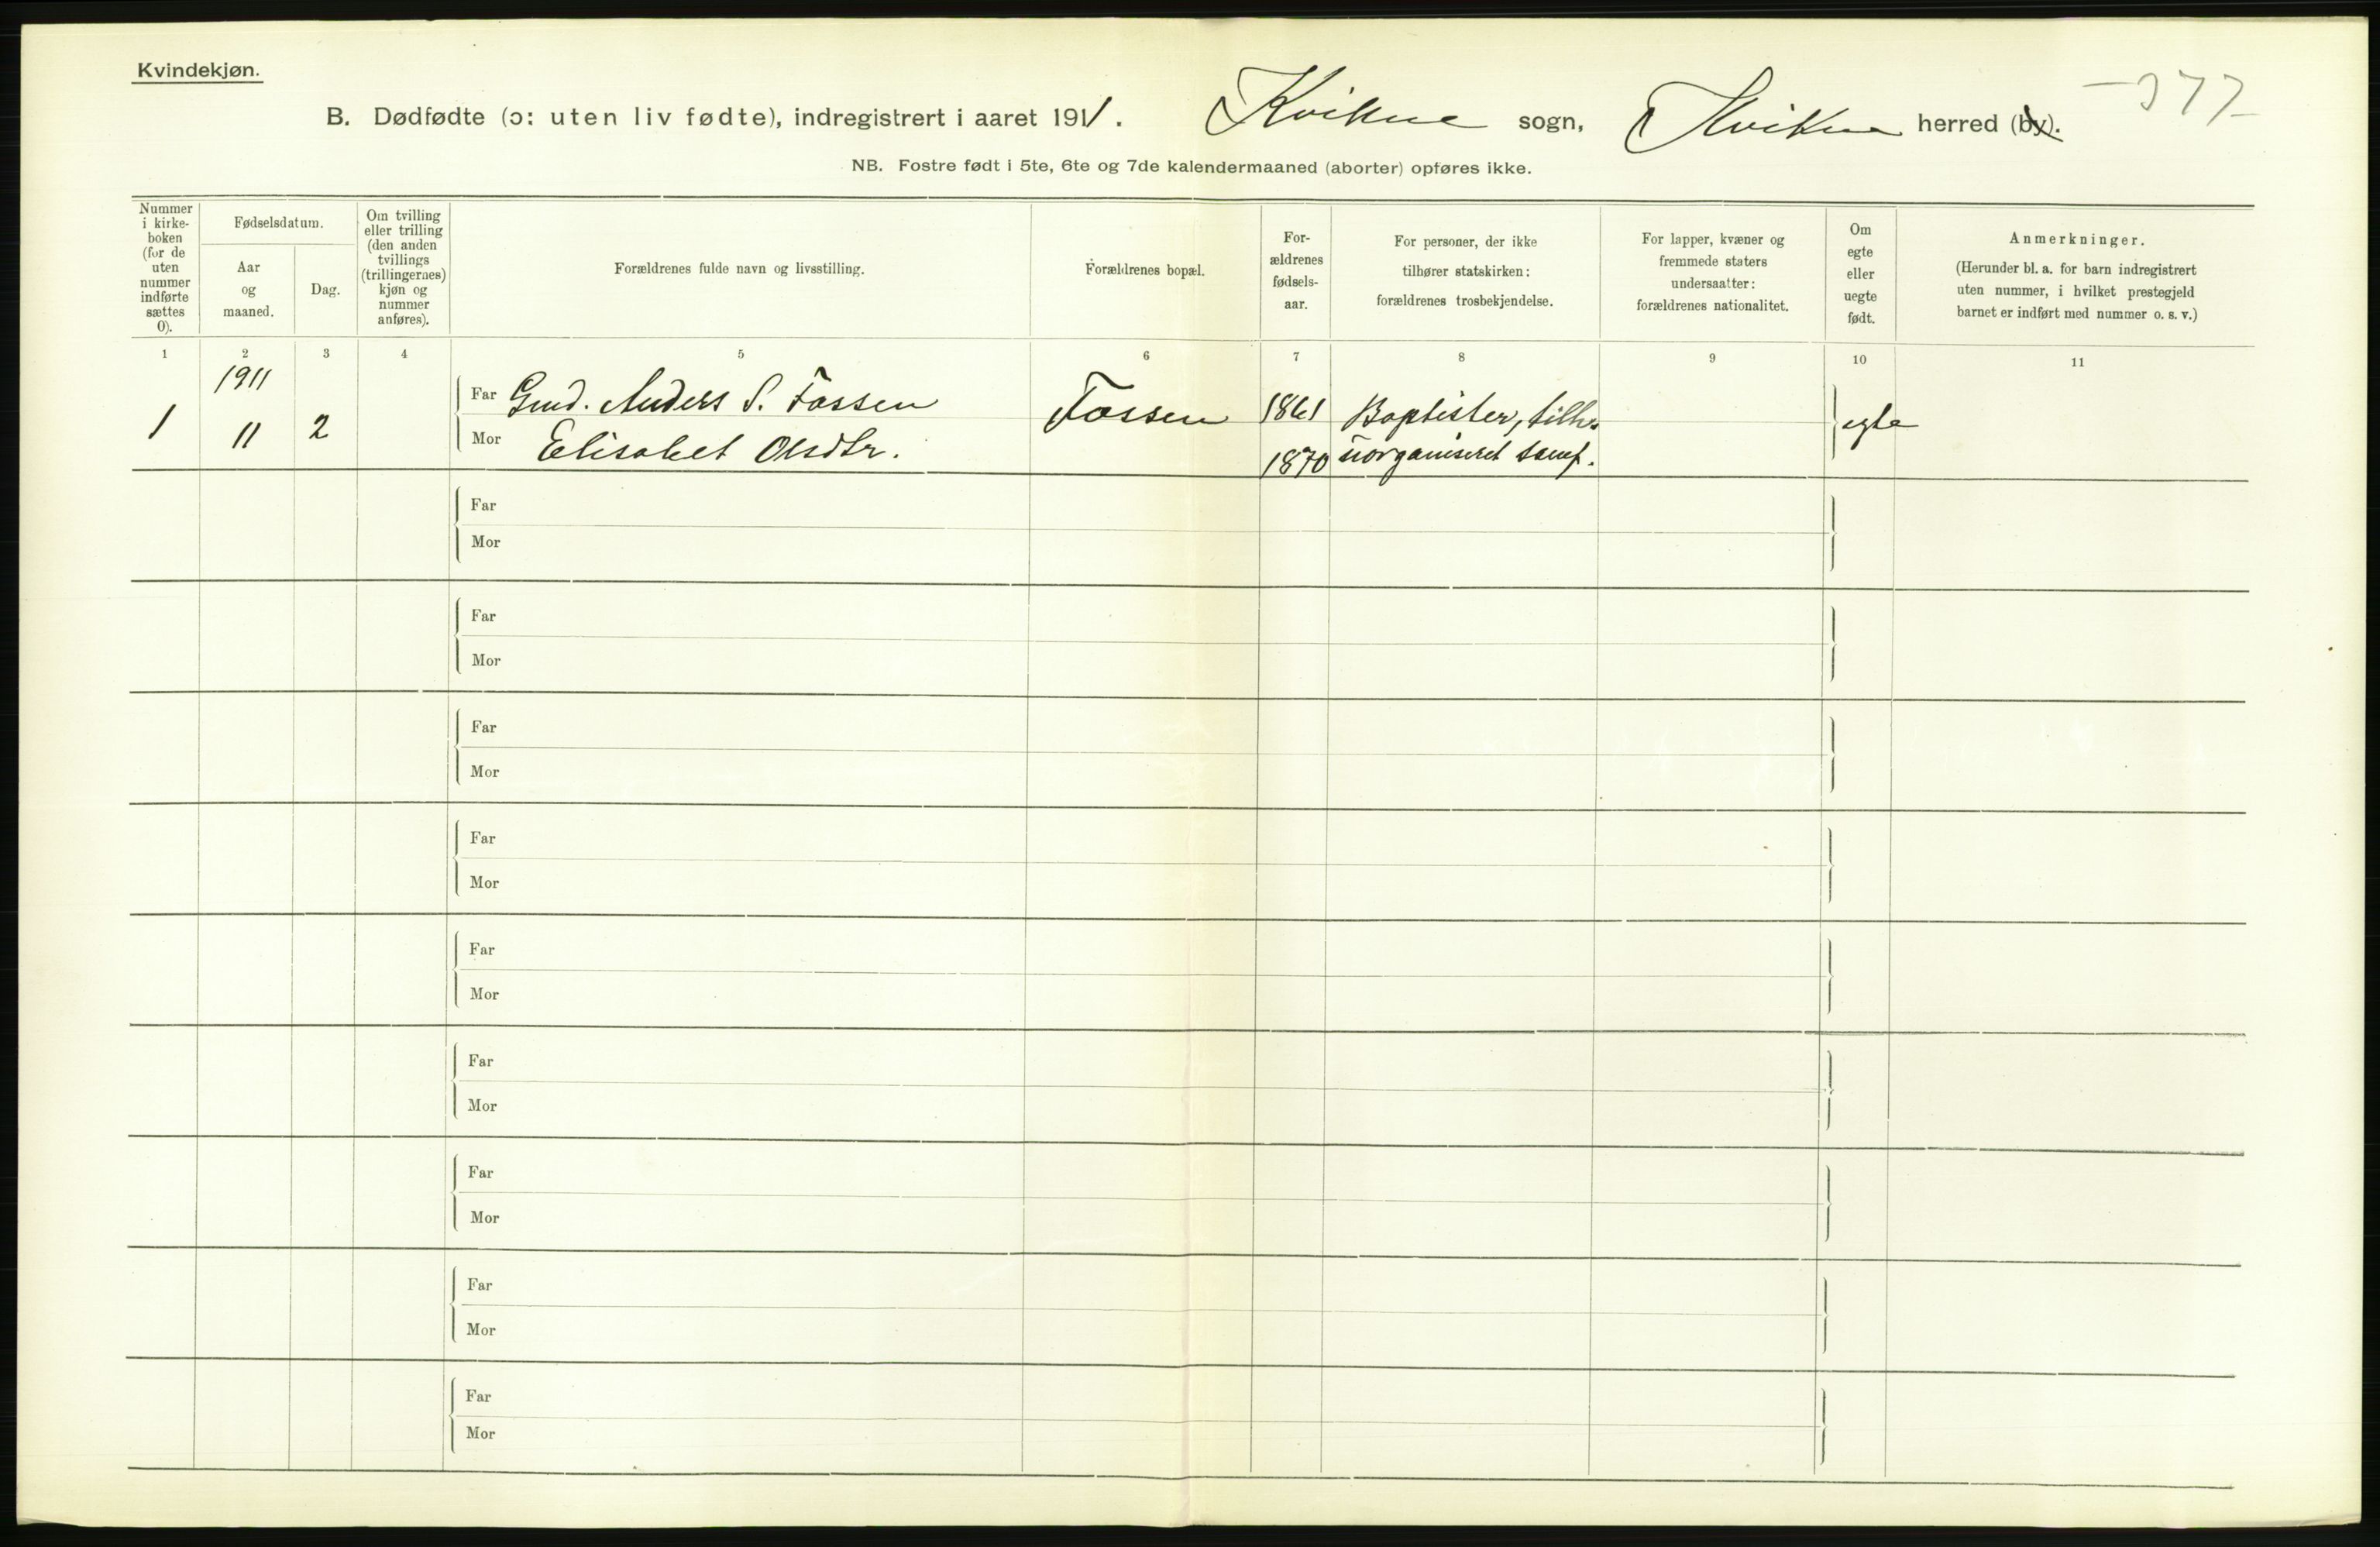 Kvindekjøn.
B. Dødfødte (ɔ: uten liv fødte), indregistrert i aaret 1911. Kvikne sogn, Kvikne herred (by).
377
NB. Fostre født i 5te, 6te og 7de kalendermaaned (aborter) opføres ikke.
Nummer
i kirke-
boken
(for de
uten
nummer
indførte
sættes
0).
Fødselsdatum.
Aar
og
maaned.
Dag.
Om tvilling
eller trilling
(den anden
tvillings
(trillingernes)
kjøn og
nummer
anføres).
Forældrenes fulde navn og livsstilling.
Forældrenes bopæl.
For-
ældrenes
fødsels-
aar.
For personer, der ikke
tilhører statskirken:
forældrenes trosbekjendelse.
For lapper, kvæner og
fremmede staters
undersaatter:
forældrenes nationalitet.
Om
egte
eller
uegte
født.
Anmerkninger.
(Herunder bl. a. for barn indregistrert
uten nummer, i hvilket prestegjeld
barnet er indført med nummer o. s. v.)
1 2 3 4 5 6 7 8 9 10 11
1911
1 11 2
Far Gmd. Anders S. Fossen Fossen 1861 Baptister, tilh. egte
Mor Elisabet Olsdtr. 1870 uorganiseret samf.
Far
Mor
Far
Mor
Far
Mor
Far
Mor
Far
Mor
Far
Mor
Far
Mor
Far
Mor
Far
Mor